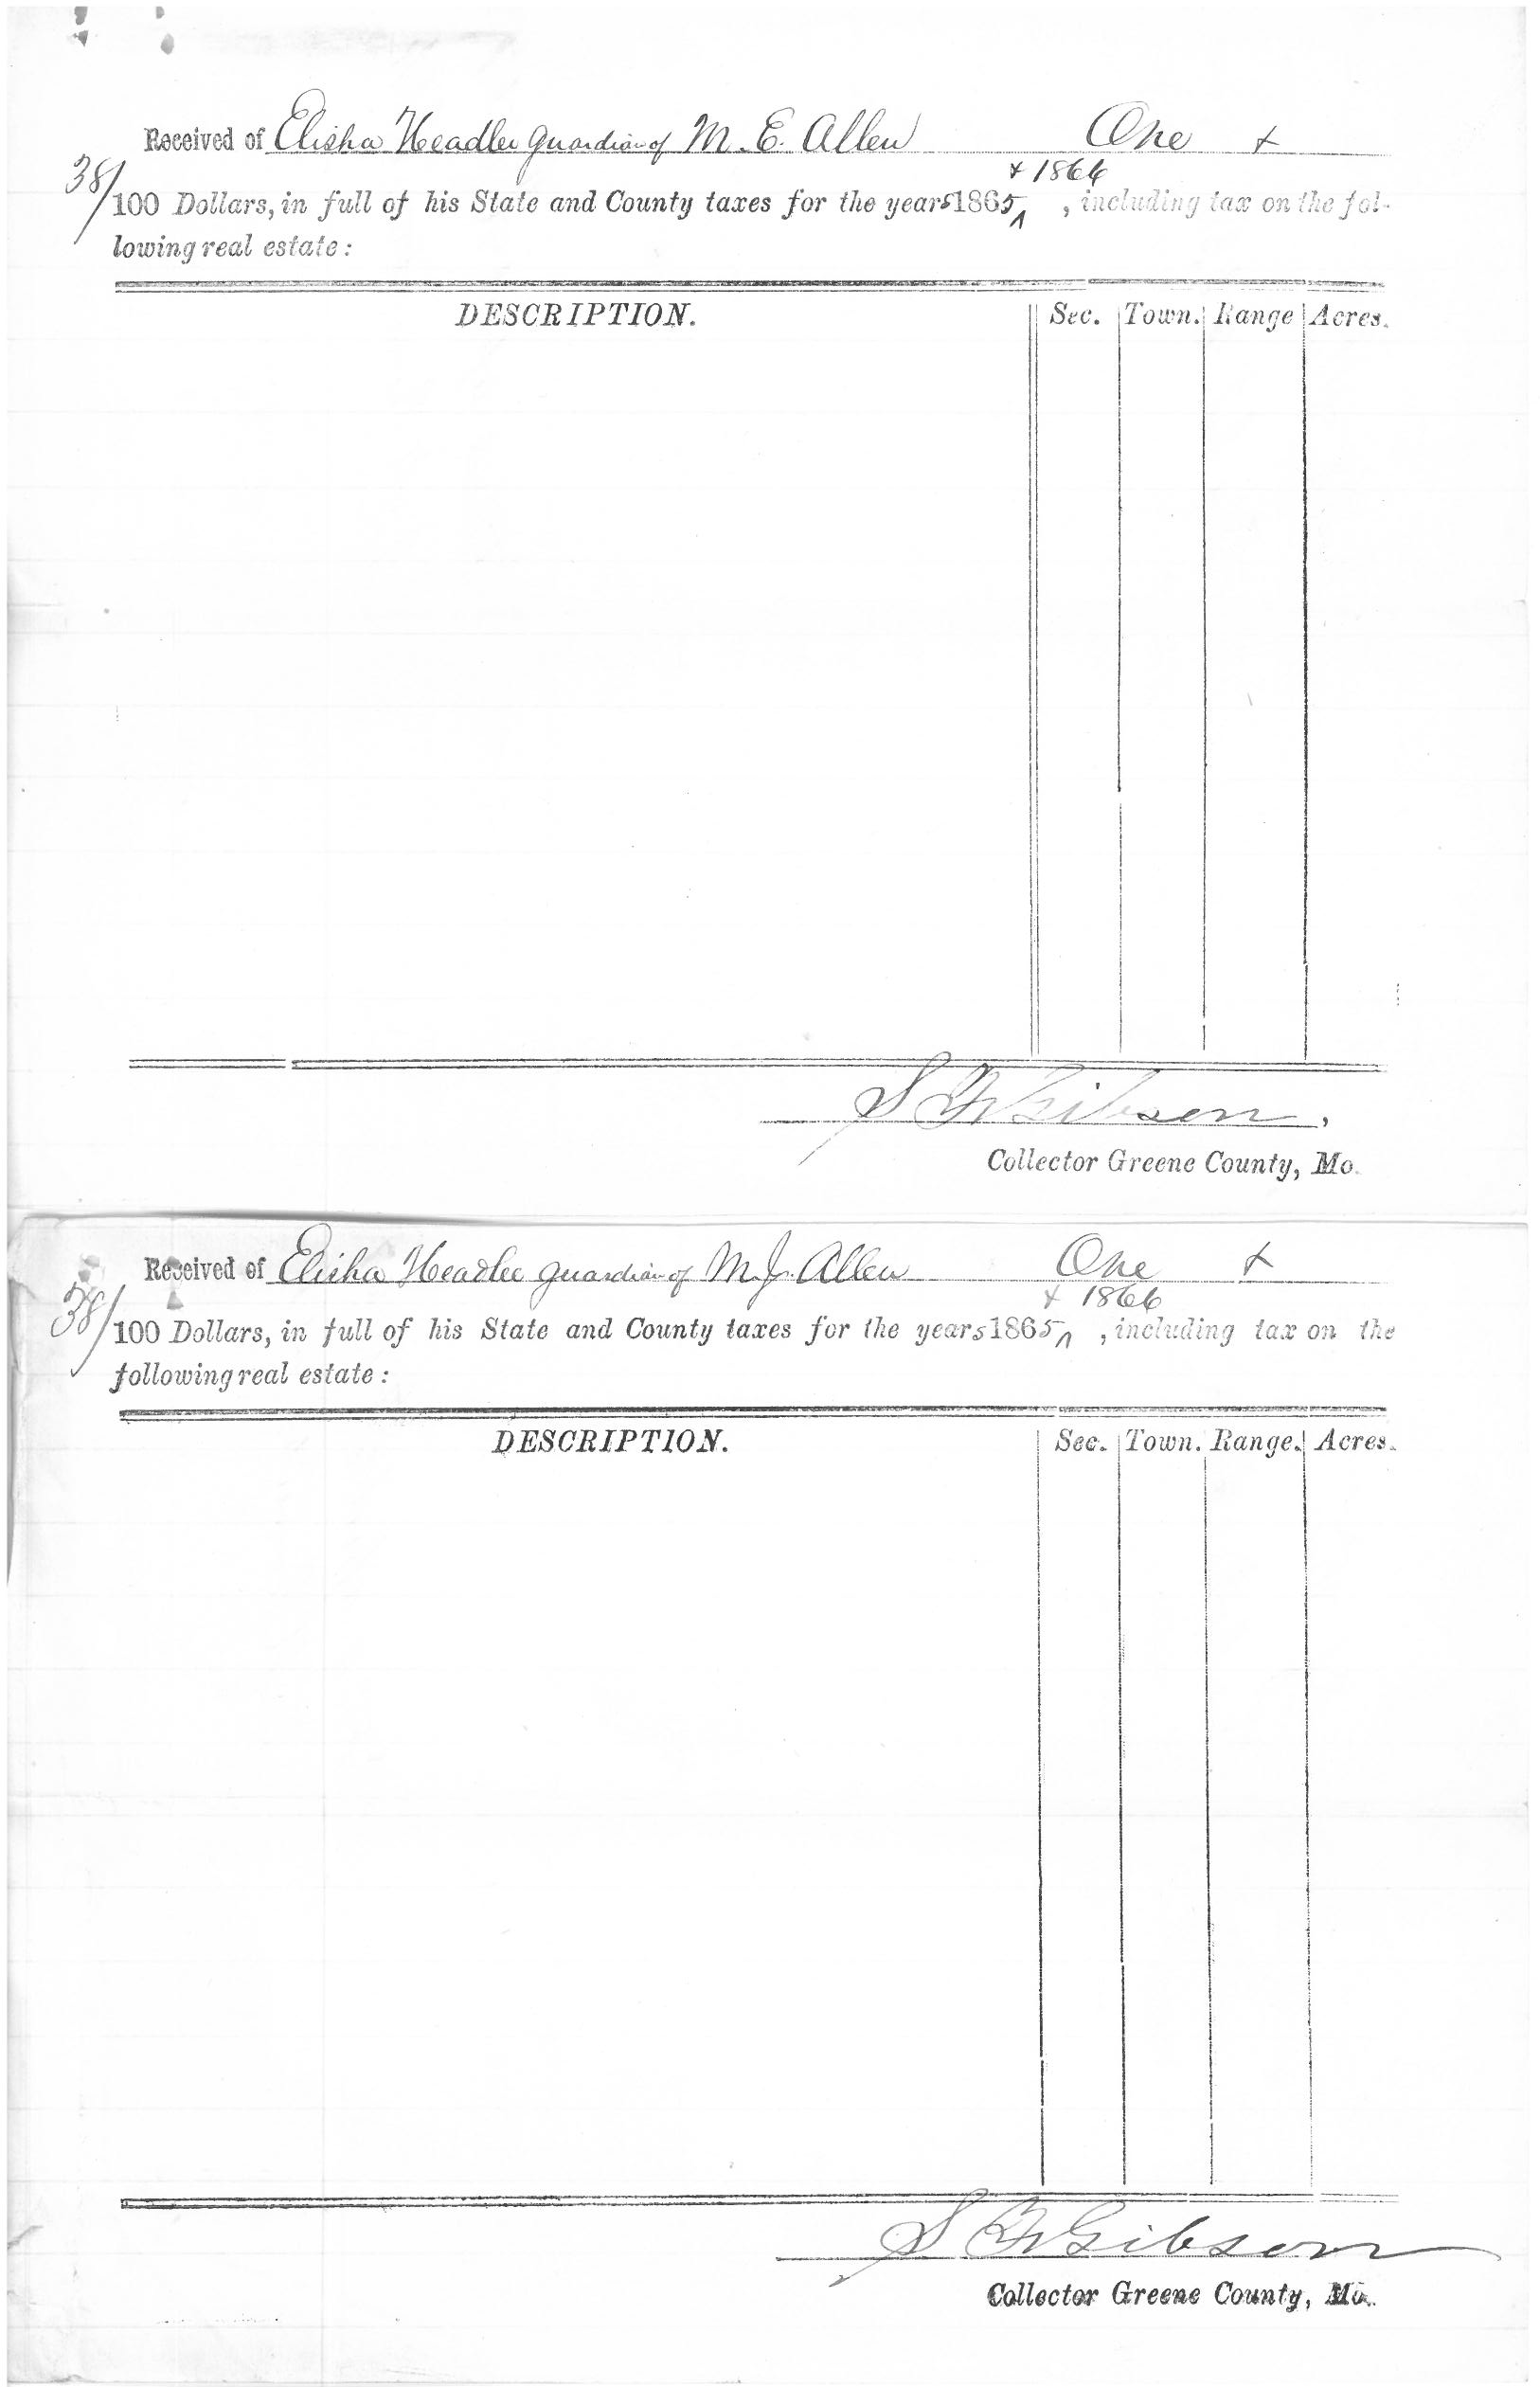 Received of Elisha Headlee guardian of M. E. Allen One &
& 1866
38/100 Dollars, in full of his State and County taxes for the years 1865^ , including tax on the fol-
lowing real estate:
DESCRIPTION. Sec. Town. Range Acres.
Gibson,
Collector Greene County, Mo.
Received of Elisha Headlee guardian of M. J. Allen One &
& 1866
38/100 Dollars, in full of his State and County taxes for the years 1865^ , including tax on the
following real estate:
DESCRIPTION. Sec. Town. Range. Acres.
Gibson
Collector Greene County, Mo.